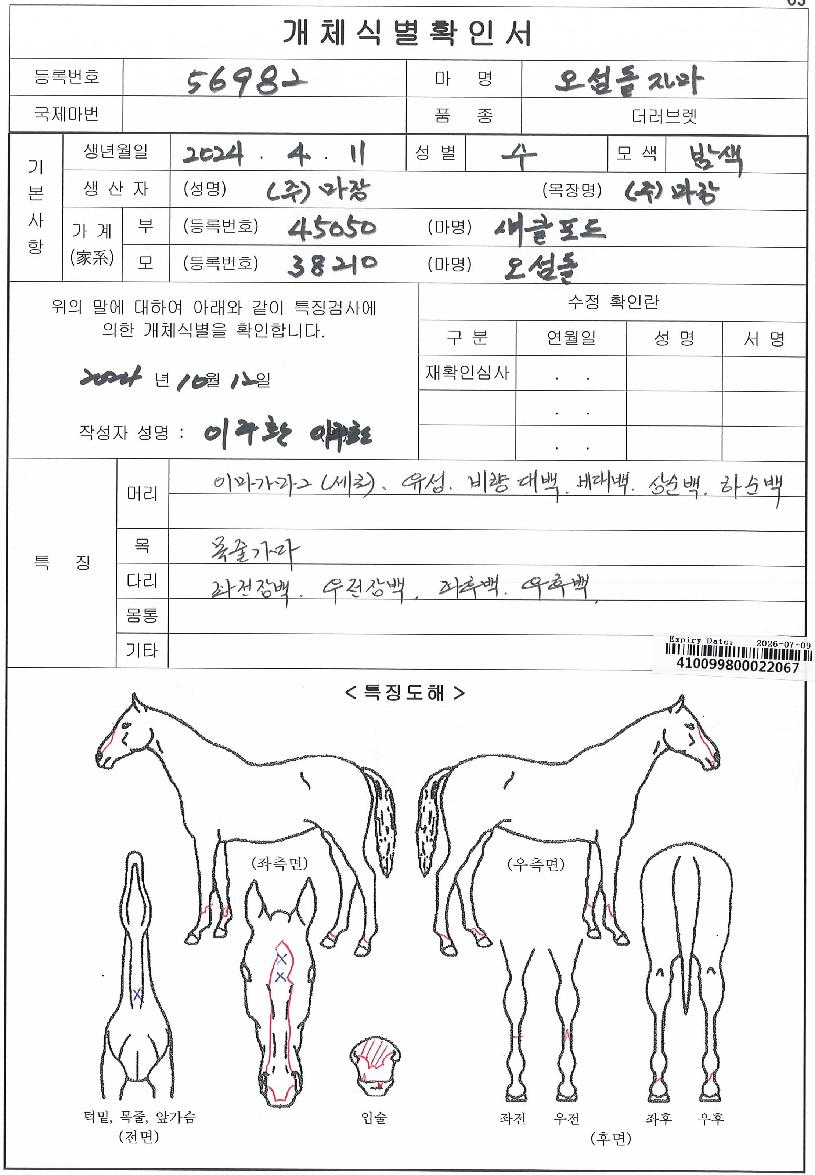 개체식별확인서
등록번호 56982 마 명 오섬돌지마
국제마번 품 종 더러브렛
기본사항
생년월일 2024 . 4 . 11 성 별 수 모 색 밤색
생 산 자 (성명) (주)마장 (목장명) (주)마장
가 계 (家系)
부 (등록번호) 45050 (마명) 섀클포드
모 (등록번호) 38210 (마명) 오섬돌
위의 말에 대하여 아래와 같이 특징검사에
의한 개체식별을 확인합니다.
2024 년 10월 12일
작성자 성명 : 이주환
수정 확인란
구 분 연월일 성 명 서 명
재확인심사 . .
. .
. .
특 징
머리 이마가마2(세로). 유성. 비량 대백. 비대백. 상순백. 하순백
목 목줄가마
다리 좌전장백. 우전장백. 좌후백. 우후백.
몸통
기타
Expiry Date: 2026-07-09
410099800022067
< 특징도해 >
(좌측면) (우측면)
턱밑, 목줄, 앞가슴
(전면)
입술
좌전 우전 좌후 우후
(후면)